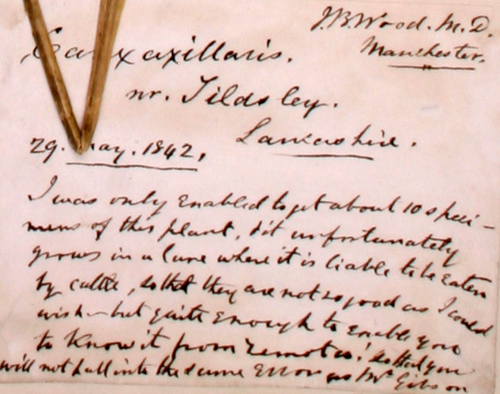 J.B. Wood. M.D.
Manchester.
Carex axillaris.
nr. Tildsley.
Lancashire.
29. May. 1842.
I was only enabled to get about 10 speci-
mens of this plant, it unfortunately
grows in a lane where it is liable to be eaten
by cattle, so that they are not so good as I could
wish - but quite enough to enable you
to know it from remota! so that you
will not fall into the same error as Mr Gibson